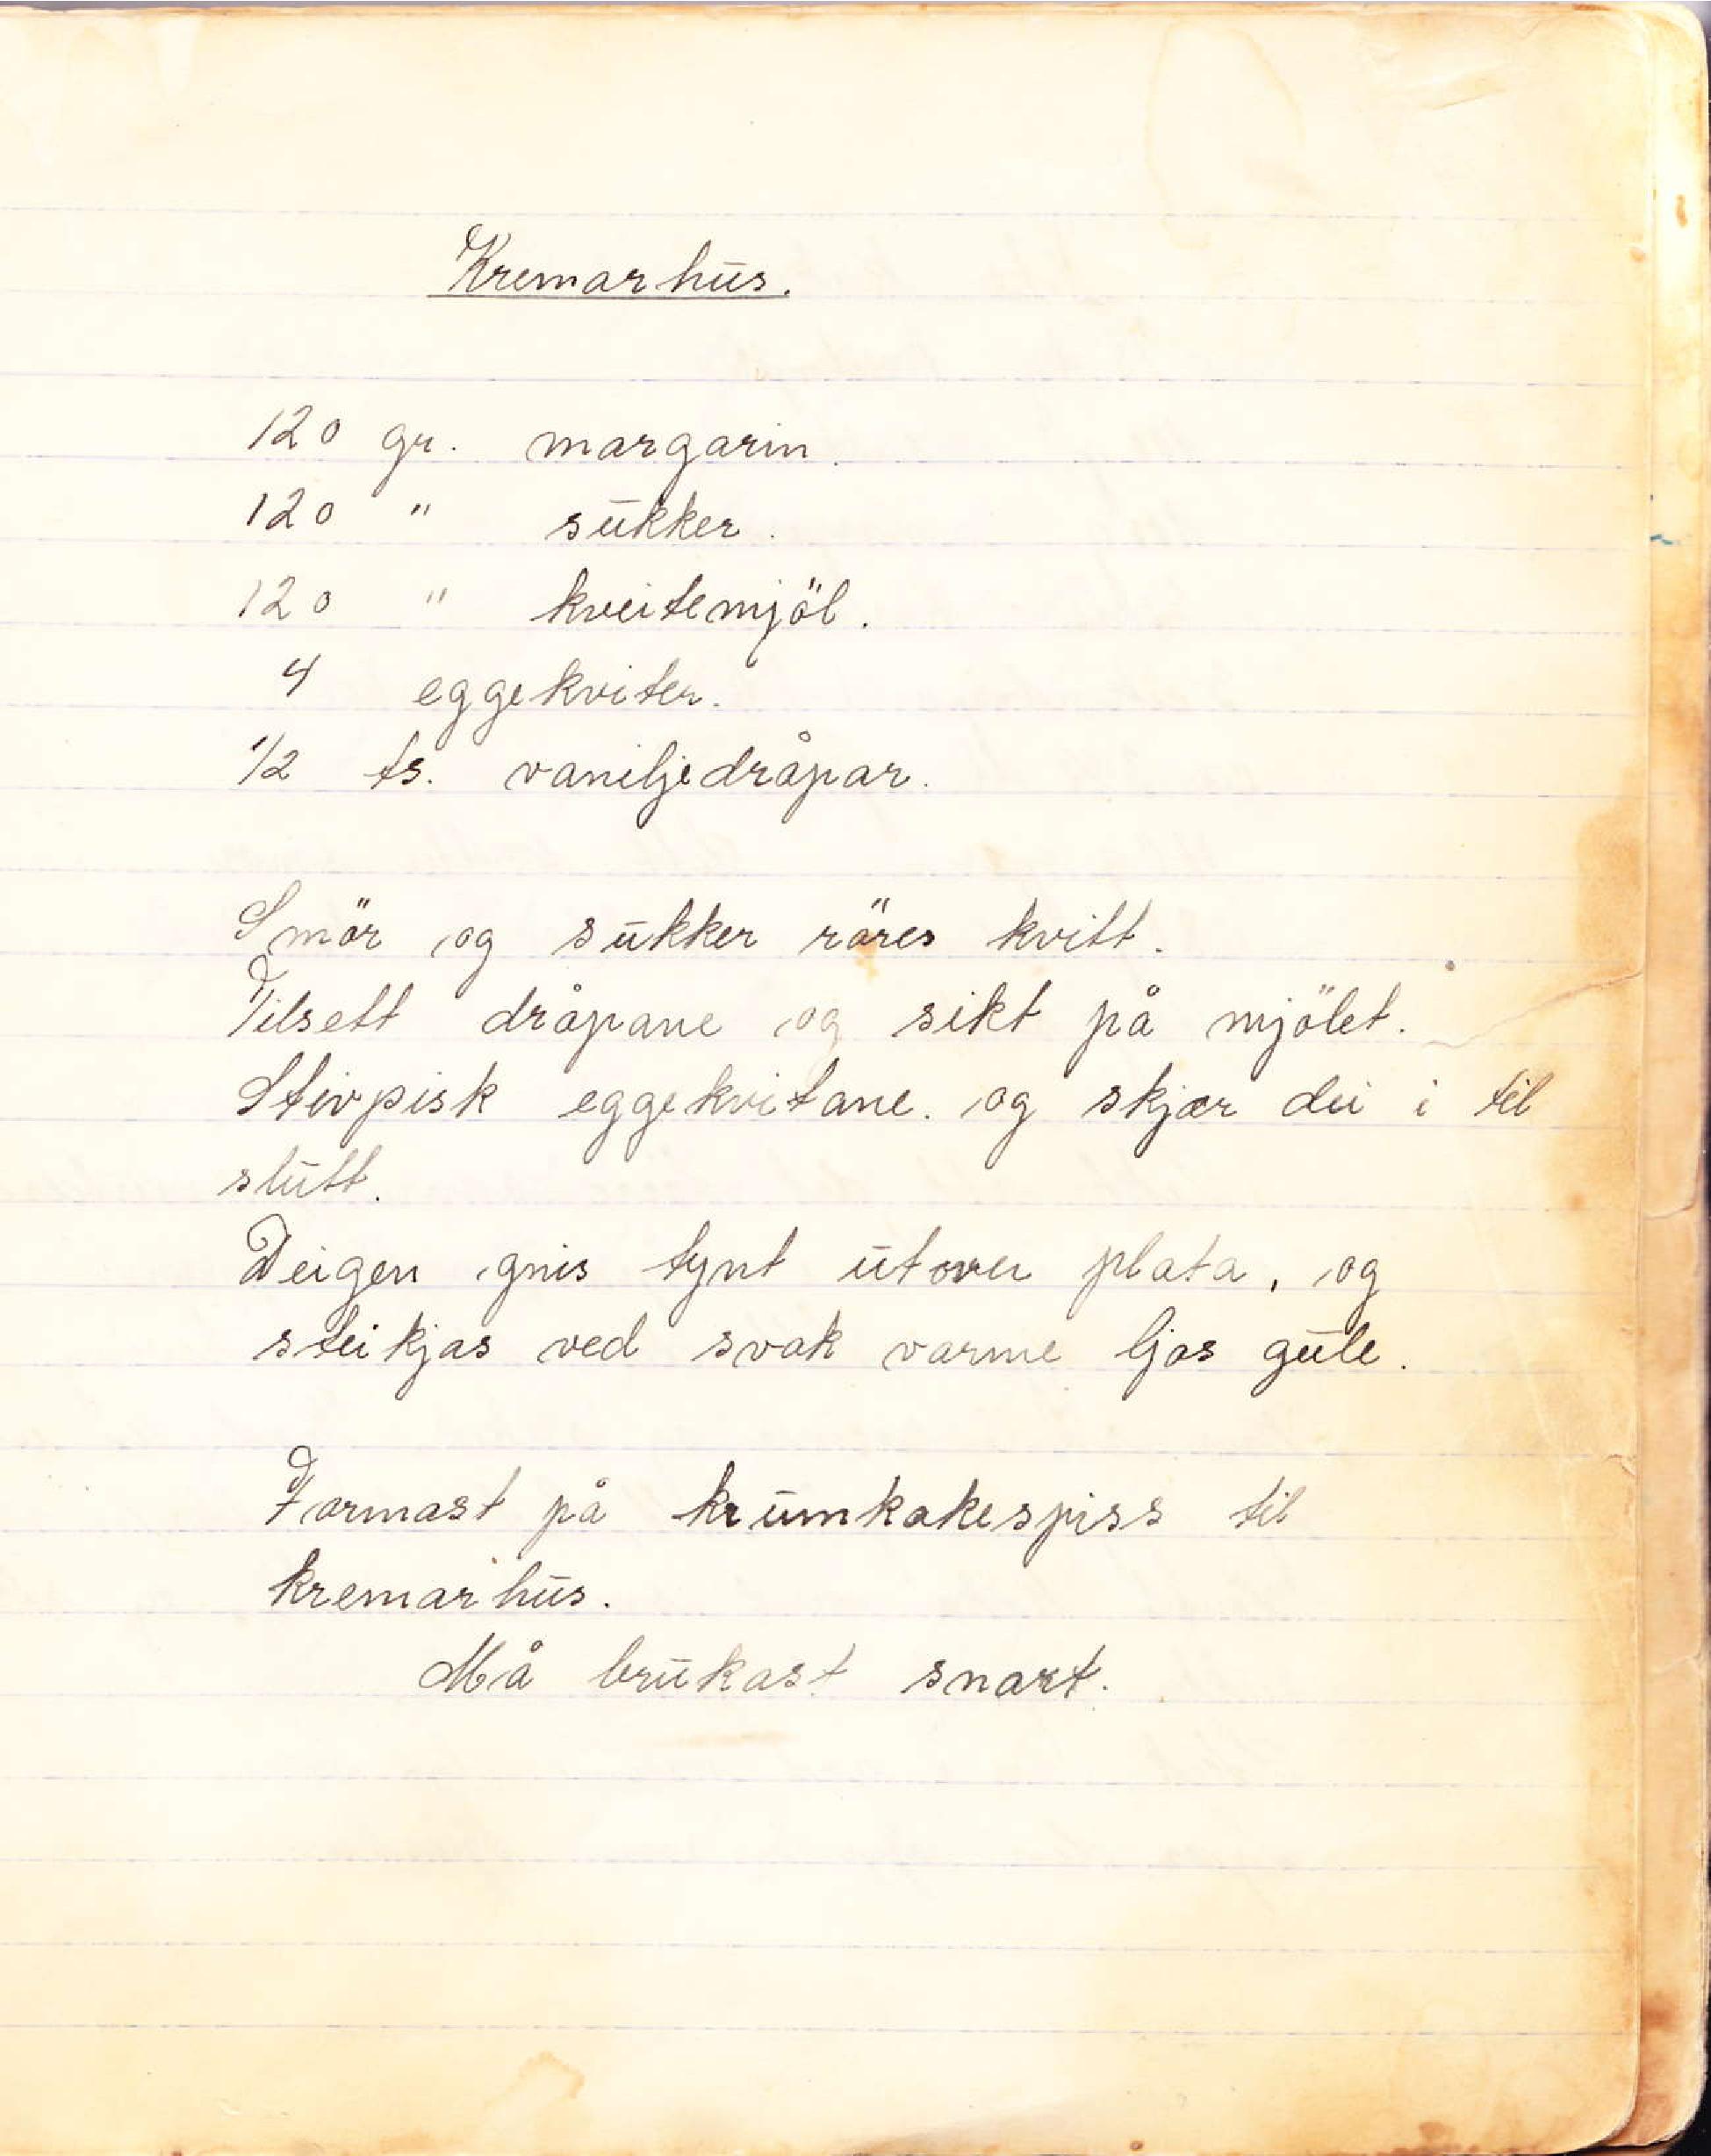 Kremarhūs.
120 gr. margarin.
120 " sūkker.
120 " kveitemjöl.
4 eggekviter.
1/2 ts. vaniljedråpar.
Smör og sūkker röres kvitt.
Tilsett dråpane og sikt på mjölet.
Stivpisk eggekvitane. og skjær dei i til
slūtt.
Deigen gnis tynt ūtover plata, og
steikjas ved svak varme ljos gūle.
Formast på krūmkakespiss til
kremarhūs.
Må brūkast snart.